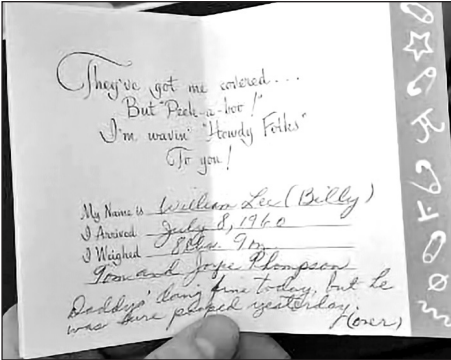 They've got me covered...
But "Peek-a-boo!"
I'm wavin' "Howdy Folks"
To you!
My Name is William Lee (Billy)
I Arrived July 8, 1960
I Weighed 8 lbs. 9
Tom and Joyce Thompson
Daddys' doing fine today, but he
was sure pooped yesterday.
(over)